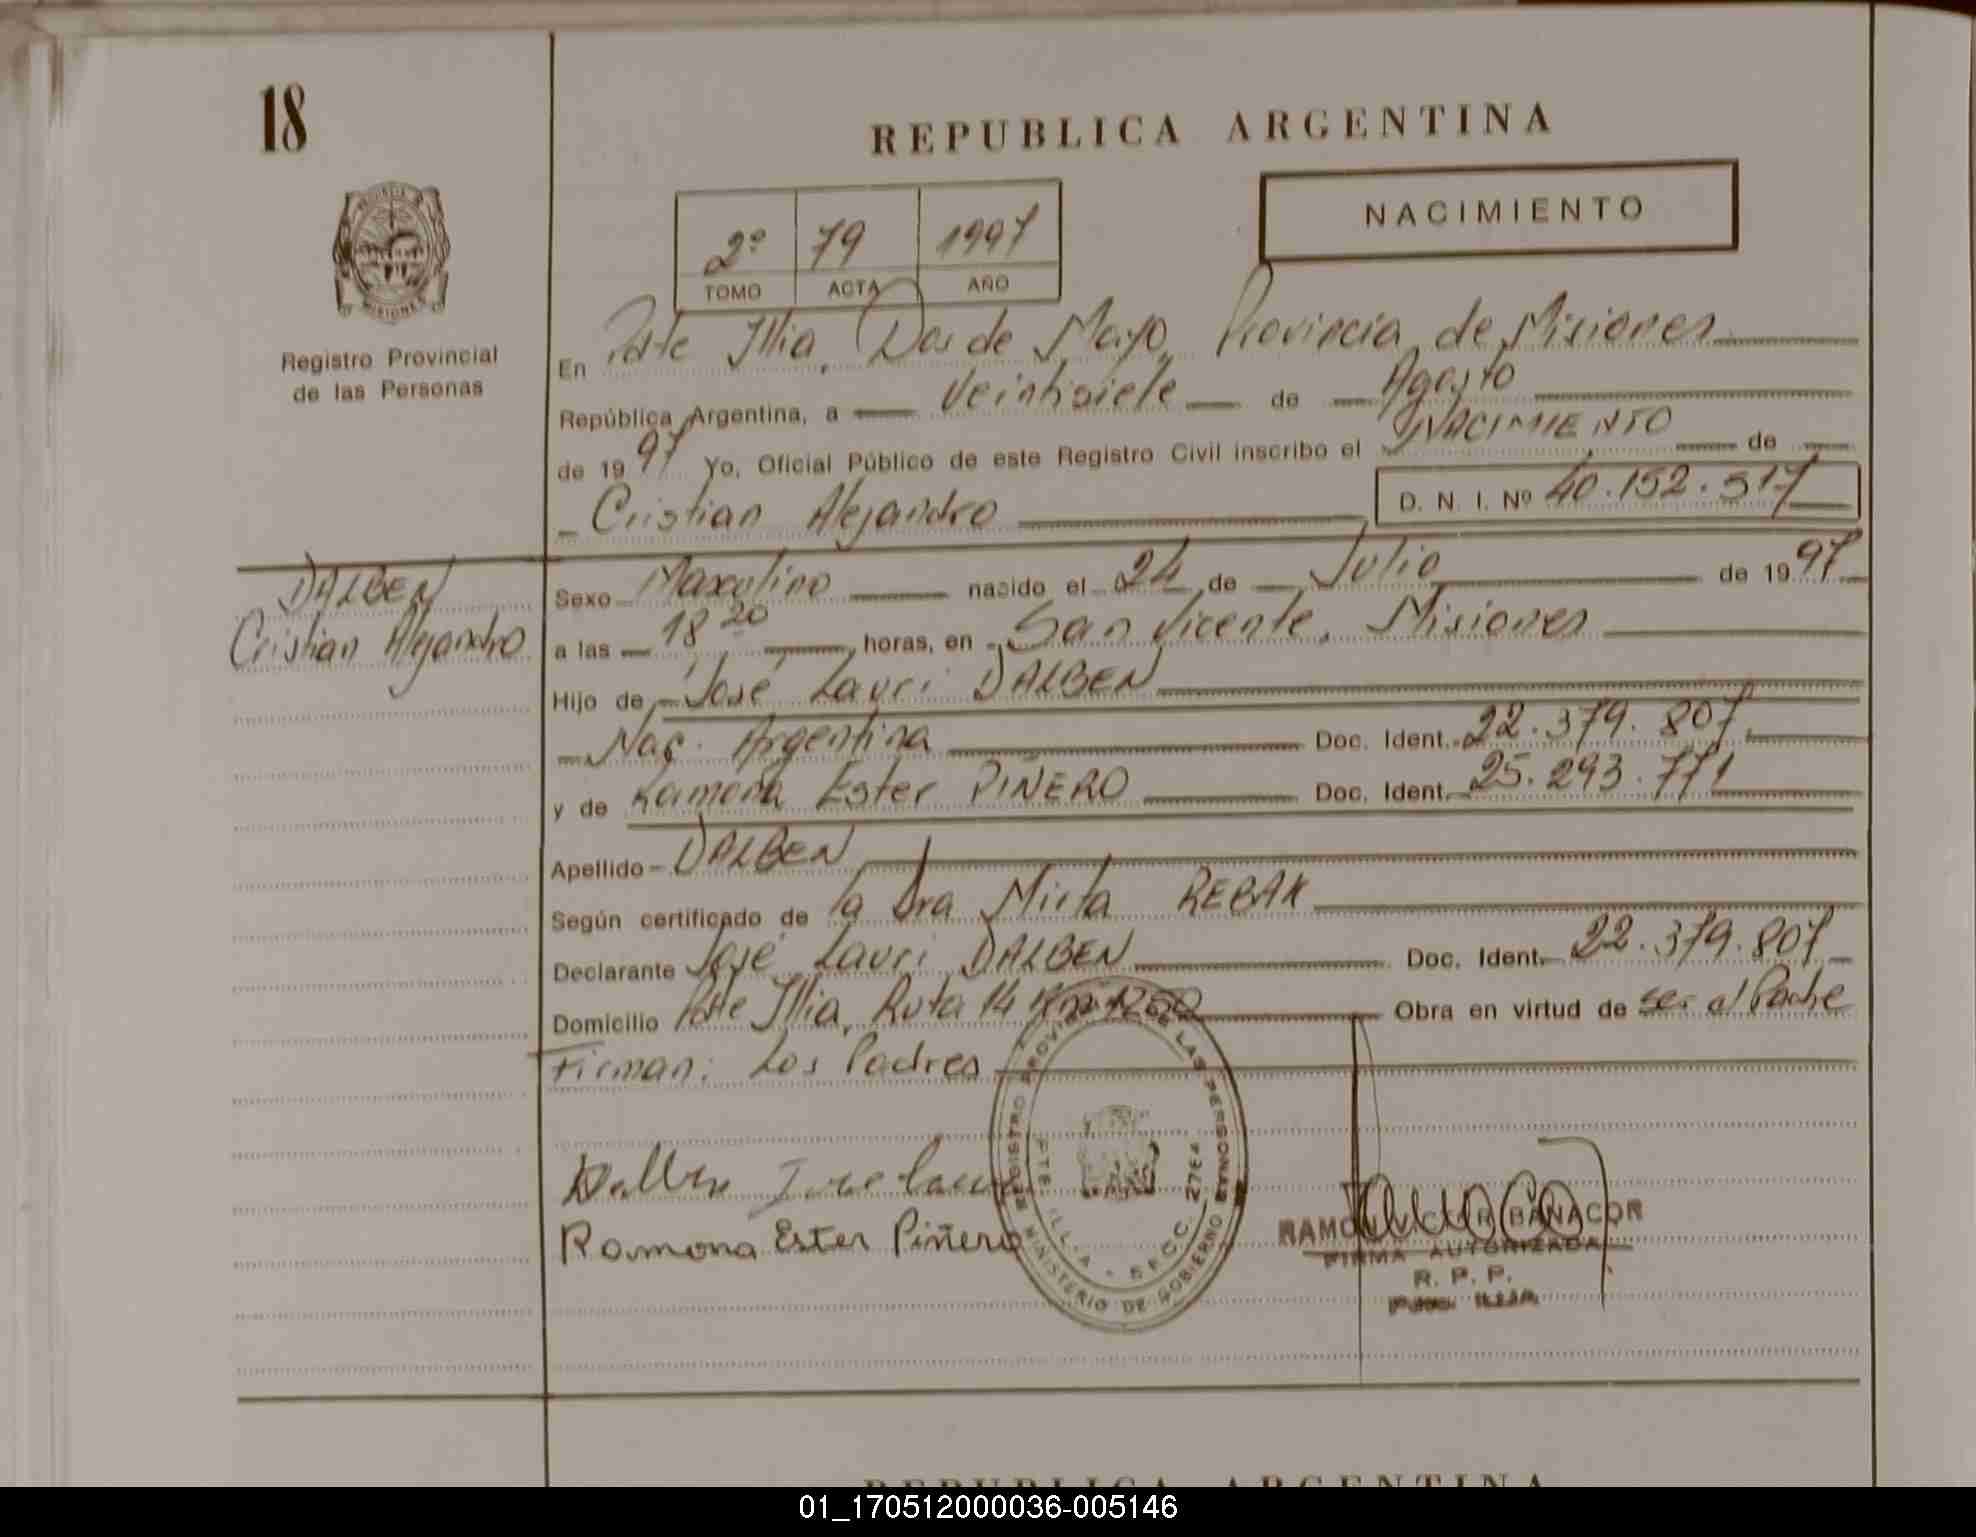 18
REPUBLICA ARGENTINA
NACIMIENTO
2º 79 1997
TOMO ACTA AÑO
Registro Provincial
de las Personas
En Pdte Illia, Dos de Mayo, Provincia de Misiones
República Argentina, a veintisiete de Agosto
de 1997 Yo, Oficial Público de este Registro Civil inscribo el NACIMIENTO de
Cristian Alejandro D. N. I. Nº 40.152.517
DALBEN
Cristian Alejandro
Sexo Masculino nacido el 24 de Julio de 1997
a las 18 20 horas, en San Vicente, Misiones
Hijo de José Lauri DALBEN
Nac. Argentina Doc. Ident. 22.379.807
y de Ramona Ester PIÑERO Doc. Ident. 25.293.771
Apellido DALBEN
Según certificado de la Dra Mirta REBAK
Declarante José Lauri DALBEN Doc. Ident. 22.379.807
Domicilio Pdte Illia, Ruta 14 Km 1260 Obra en virtud de ser el Padre
Firman: Los Padres
REGISTRO PROVINCIAL DE LAS PERSONAS
MINISTERIO DE GOBIERNO
PTE ILLIA
Ramona Ester Piñero
BANACOR
FIRMA AUTORIZADA
R. P. P.
REPUBLICA ARGENTINA
01_170512000036-005146